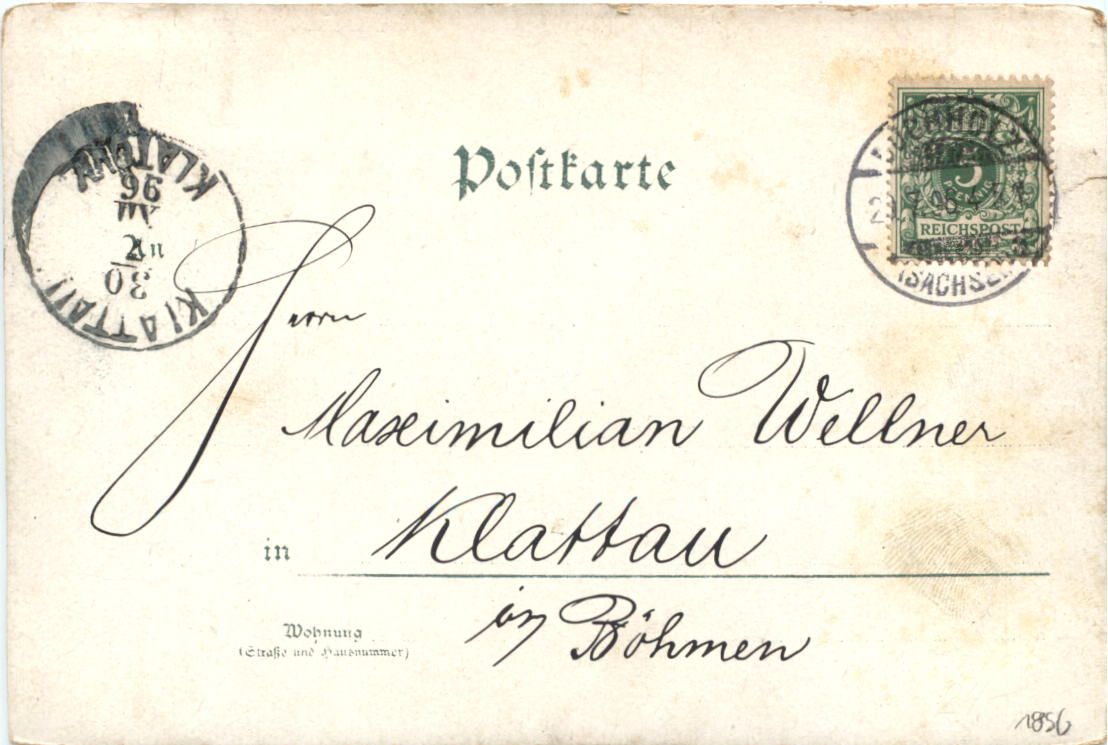 Postkarte
5
PFENNIG
REICHSPOST
(SACHSEN)
KLATTAU
30
7
96
KLATOVY
Herrn
Maximilian Wellner
in Klattau
in Böhmen
Wohnung
(Straße und Hausnummer)
1896